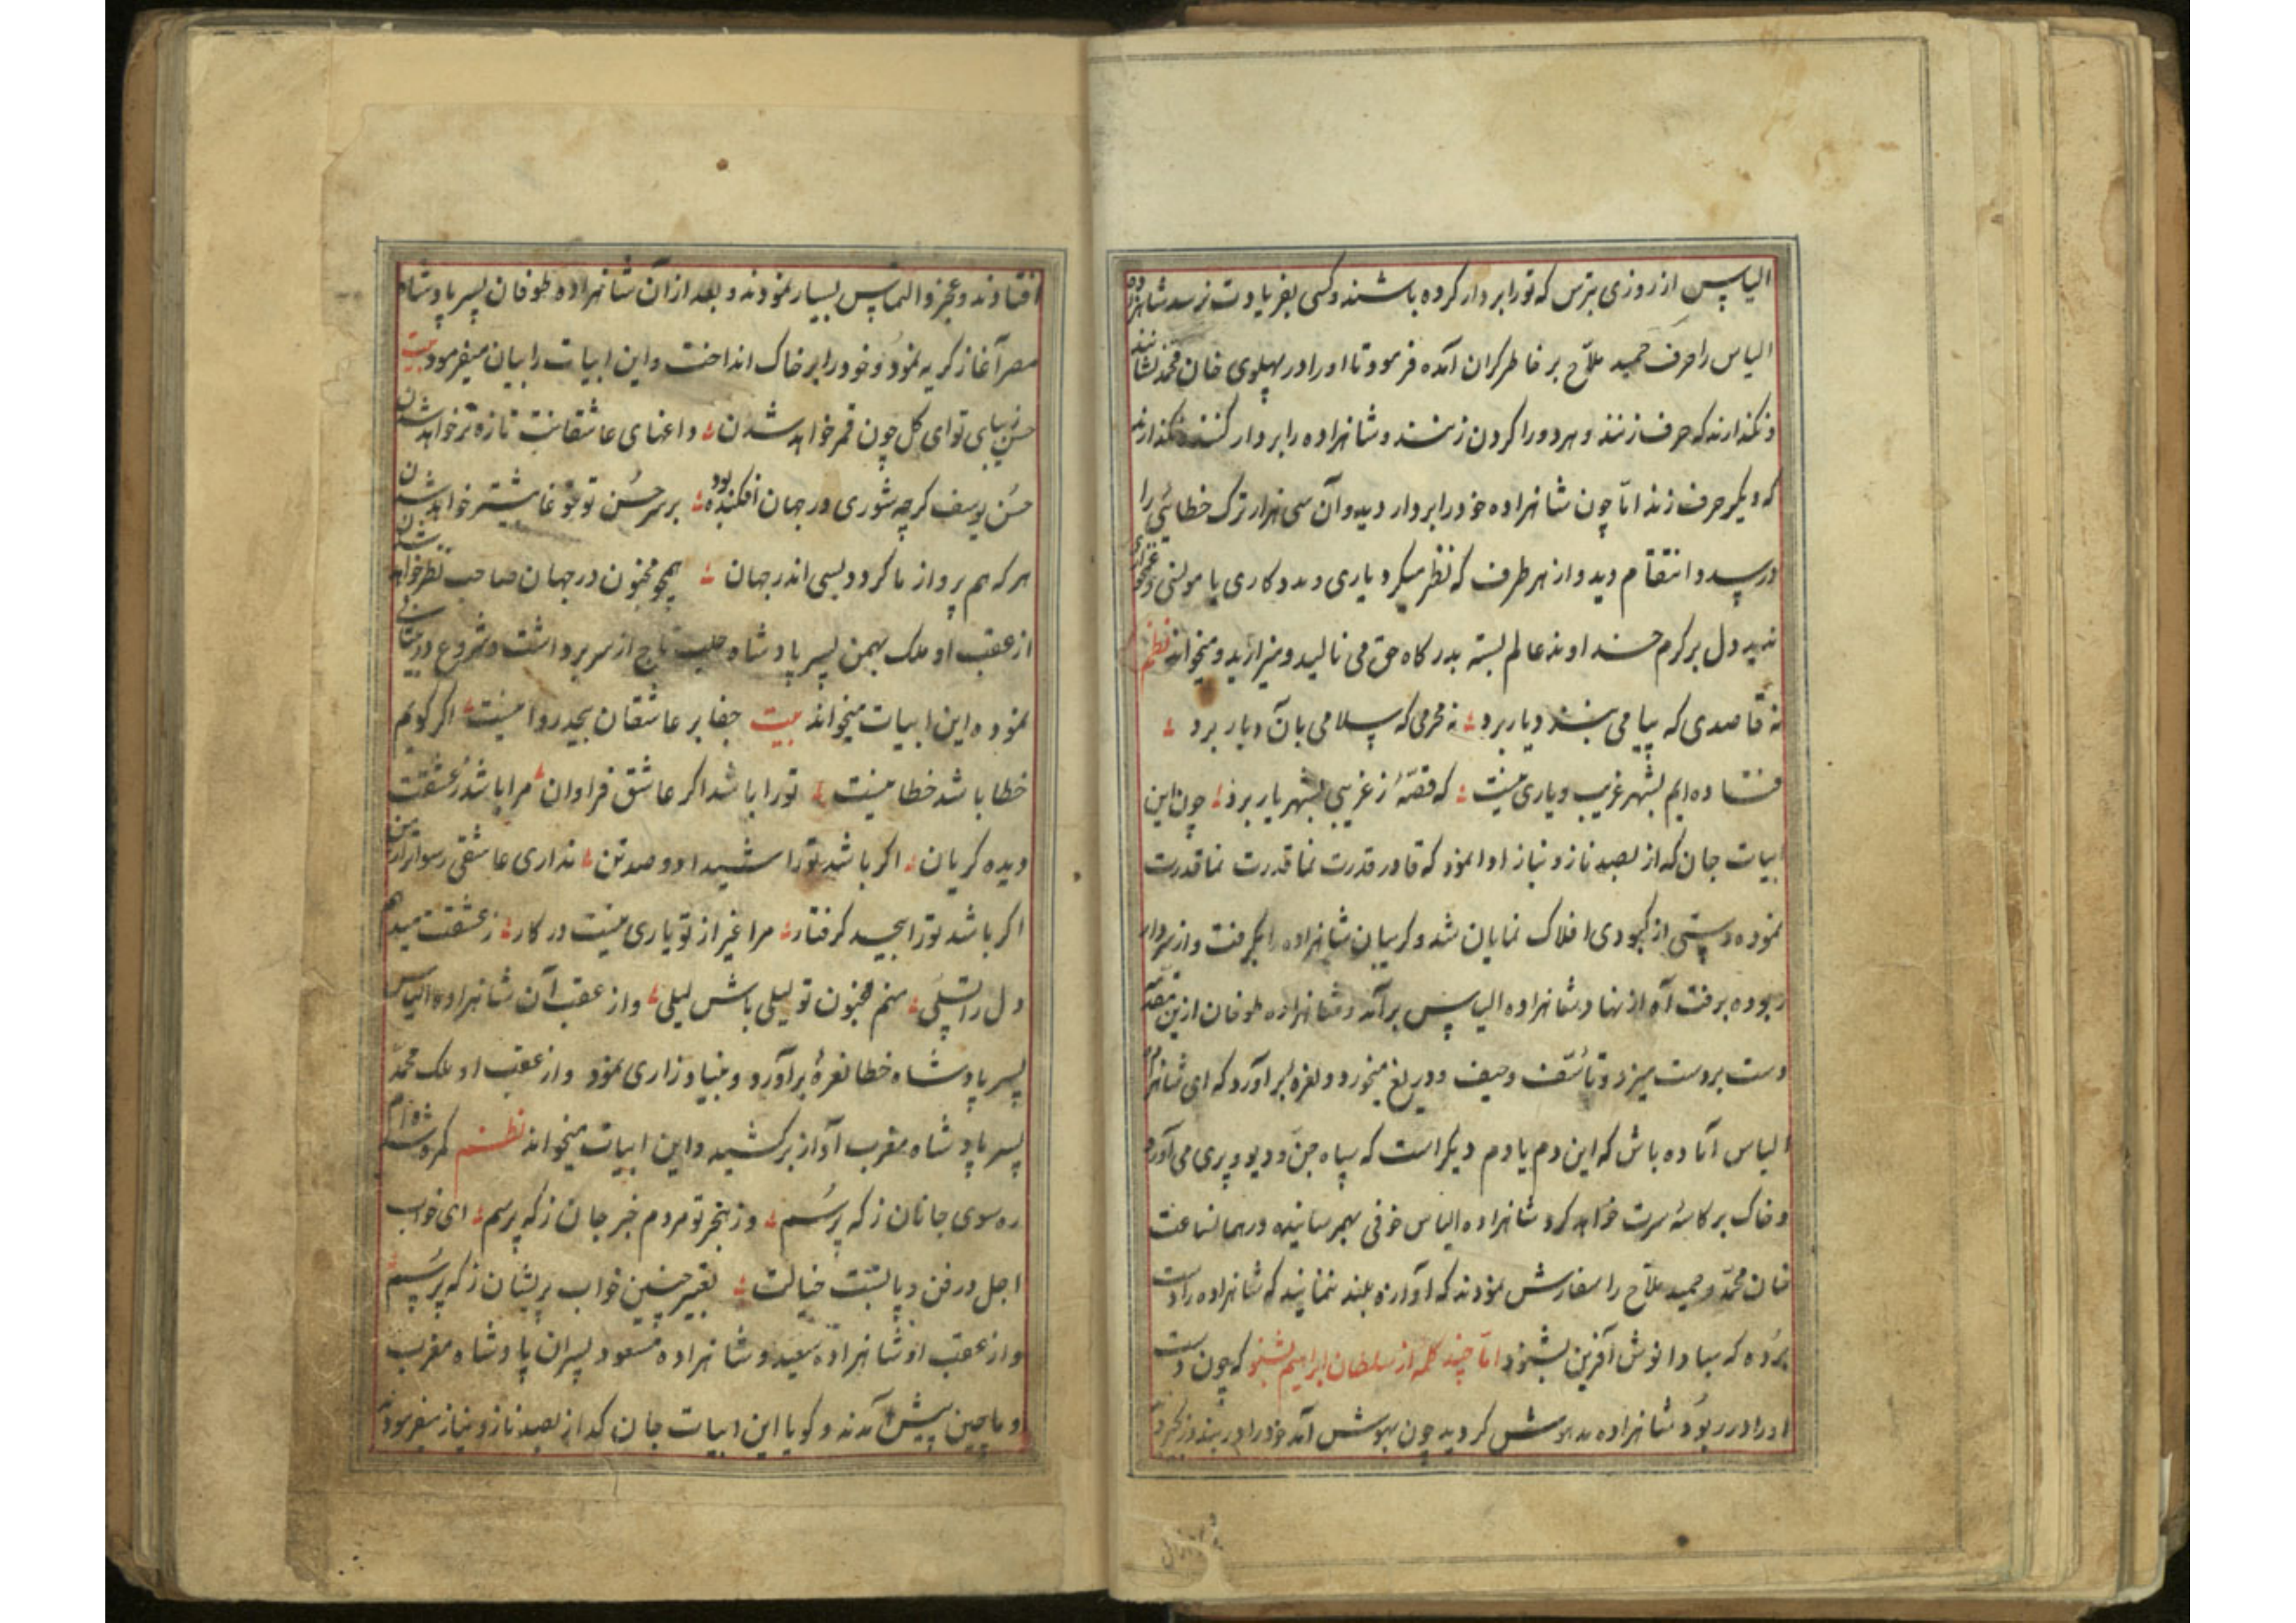 الیاس از روزی بترس که تو را بر دار کرده باشند و کسی بفریادت نرسد شاهزاده
الیاس را حرف حمید ملاّح بر خاطر کران آمده فرمود تا او را در پهلوی خان محمّد نشانند
و نکذارند که حرف زنند و هر دو را کردن زنند و شاهزاده را بر دار کنند و نکذارند
که دیکر حرف زند امّا چون شاهزاده خود را بر دار دید و آن سی هزار ترک خطائی را
در صدد انتقام دید و از هر طرف که نظر میکرد یاری و مددکاری یا مونسی و غمخواری
ندید دل بر کرم خداوند عالم بسته بدرکاه حق می نالید و میزارید و میخواند نظم
نه قاصدی که پیامی بنزد یار برد نه محرمی که سلامی بآن دیار برد
فتاده ایم بشهر غریب و یاری نیست که قصّهٔ ز غریبی بشهریار برد چون این
ابیات جان که از بصد ناز و نیاز ادا نمود که قادر قدرت نما قدرت نما قدرت
نموده دستی از کبودی افلاک نمایان شد و کریبان شاهزاده را بکرفت و از سر دار
ربوده برفت آه از نهاد شاهزاده الیاس برآمد و شاهزاده طوفان ازین مقدّمه
دست بر دست میزد و تأسّف و حیف و دریغ میخورد و نعره بر آورد که ای شاهزاده
الیاس آماده باش که این دم یا دم دیکر است که سپاه جنّ و دیو و پری می آورد
و خاک بر کاسهٔ سرت خواهد کرد شاهزاده الیاس خوفی بهم رسانیده در همانساعت
خان محمّد و حمید ملاّح را سفارش نمودند که آوازه بلند ننمایند که شاهزاده را دست
برده که مبادا نوش آفرین بشنود امّا چند کلمه از سلطان ابراهیم بشنو که چون دست
او را در ربود شاهزاده مدهوش کردید چون بهوش آمد خود را در بند و زنجیر دید
افتادند و عجز و التماس بسیار نمودند و بعد از آن شاهزاده طوفان پسر پادشاه
مصر آغاز کریه نمود و خود را بر خاک انداخت و این ابیات را بیان میفرمود بیت
حسن زیبای تو ای کل چون قمر خواهد شدن داغهای عاشقانت تازه تر خواهد شدن
حسن یوسف کرچه شوری در جهان افکنده بود بر سر حسن تو غوغا بیشتر خواهد شدن
هر که هم پرواز ما کردد بسی اندر جهان همچو مجنون در جهان صاحب نظر خواهد شدن
از عقب او ملک بهمن پسر پادشاه حلب تاج از سر برداشت و شروع در بیتابی
نموده این ابیات میخواند بیت جفا بر عاشقان بیحد روا نیست اکر کویم
خطا باشد خطا نیست تو را باشد اکر عاشق فراوان مرا باشد ز عشقت
دیده کریان اکر باشد تو را شیدا دو صد تن نداری عاشقی رسواتر از من
اکر باشد تو را بیحد کرفتار مرا غیر از تو یاری نیست در کار ز عشقت میدهم
دل را تسلّی منم مجنون تو لیلی باش لیلی و از عقب آن شاهزاده الیاس
پسر پادشاه خطا نعرهٔ برآورد و بنیاد زاری نمود و از عقب او ملک محمّد
پسر پادشاه مغرب آواز برکشید و این ابیات میخواند نظم کمره شده ام
ره سوی جانان ز که پرسم وز هجر تو مردم خبر جان ز که پرسم ای خواب
اجل در فن و پا بست خیالت تعبیر چنین خواب پریشان ز که پرسم
و از عقب او شاهزاده سعید و شاهزاده مسعود پسران پادشاه مغرب
و ماچین پیش آمدند و کویا این ابیات جان کداز بصد ناز و نیاز میفرمودند